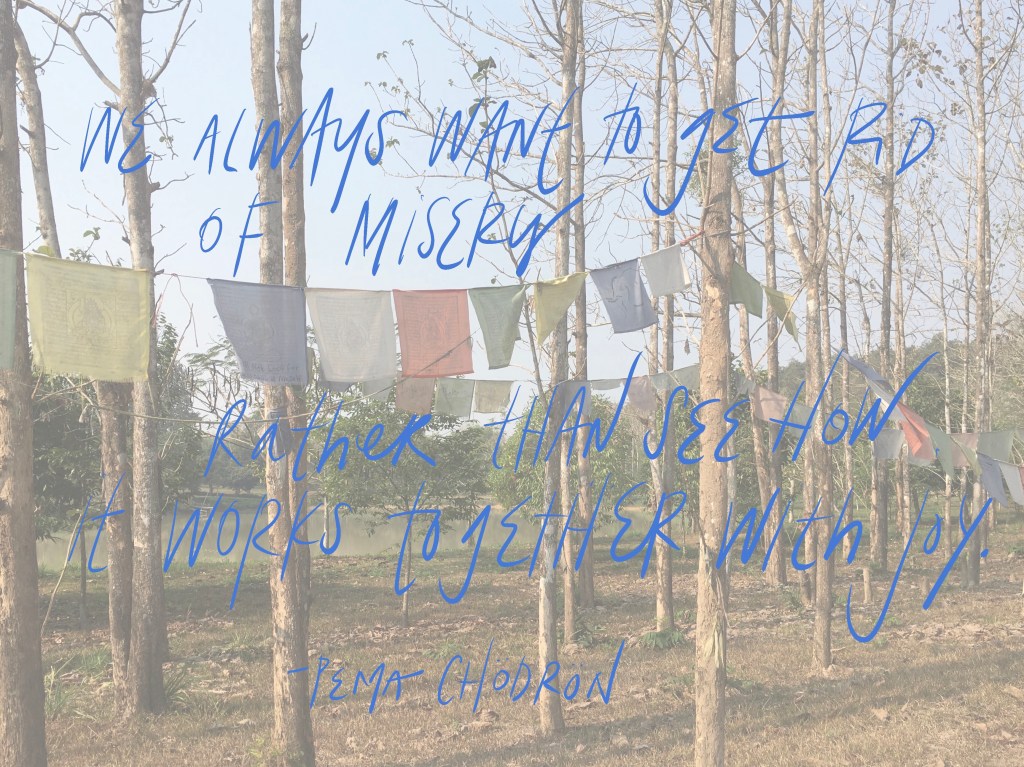 WE ALWAYS WANT to gET RID
OF MISERY
RatheR tHAN SEE HOW
it WORKS togETHER With joy.
-PEMA CHODRON